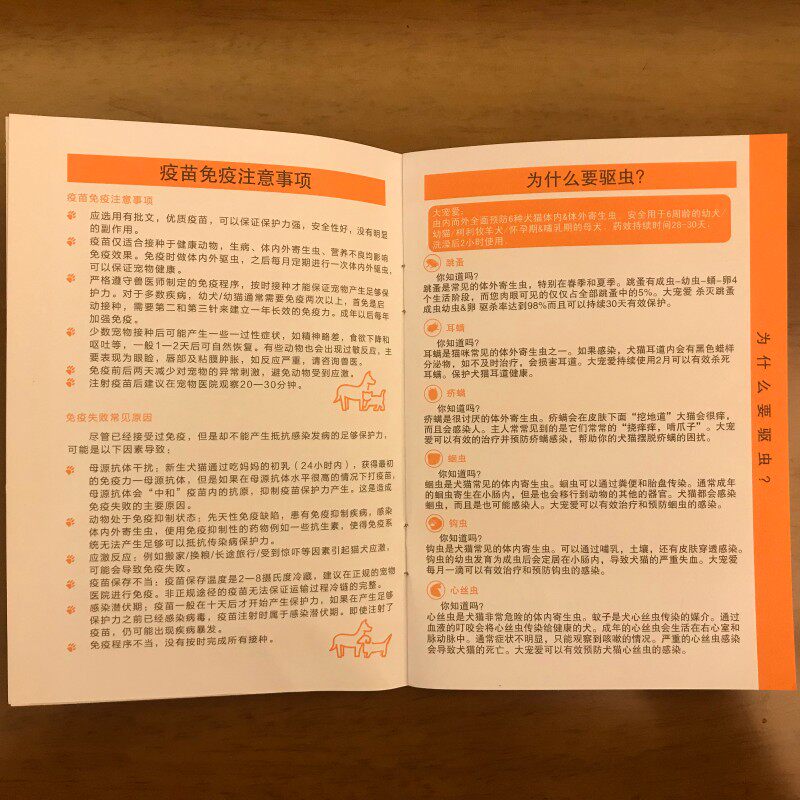 疫苗免疫注意事项
疫苗免疫注意事项
应选用有批文，优质疫苗，可以保证保护力强，安全性好，没有明显
的副作用。
疫苗仅适合接种于健康动物，生病、体内外寄生虫、营养不良均影响
免疫效果。免疫时做体内外驱虫，之后每月定期进行一次体内外驱虫，
可以保证宠物健康。
严格遵守兽医师制定的免疫程序，按时接种才能保证宠物产生足够保
护力。对于多数疾病，幼犬/幼猫通常需要免疫两次以上，首免是启
动接种，需要第二和第三针来建立一年长效的免疫力。成年以后每年
加强免疫。
少数宠物接种后可能产生一些一过性症状，如精神略差，食欲下降和
呕吐等，一般1—2天后可自然恢复。有些动物也会出现过敏反应，主
要表现为眼睑，唇部及粘膜肿胀，如反应严重，请咨询兽医。
免疫前后两天减少对宠物的异常刺激，避免动物受到应激。
注射疫苗后建议在宠物医院观察20—30分钟。
免疫失败常见原因
尽管已经接受过免疫，但是却不能产生抵抗感染发病的足够保护力，
可能是以下因素导致；
母源抗体干扰；新生犬猫通过吃妈妈的初乳（24小时内），获得最初
的免疫力—母源抗体，但是如果在母源抗体水平很高的情况下打疫苗，
母源抗体会“中和”疫苗内的抗原，抑制疫苗保护力产生。这是造成
免疫失败的主要原因。
动物处于免疫抑制状态；先天性免疫缺陷，患有免疫抑制疾病，感染
体内外寄生虫，使用免疫抑制性的药物例如一些抗生素，使得免疫系
统无法产生足够可以抵抗传染病保护力。
应激反应；例如搬家/换粮/长途旅行/受到惊吓等因素引起猫犬应激，
可能会导致免疫失败。
疫苗保存不当；疫苗保存温度是2—8摄氏度冷藏，建议在正规的宠物
医院进行免疫。非正规途径的疫苗无法保证运输过程冷链的完整。
感染潜伏期；疫苗一般在十天后才开始产生保护力，如果在产生足够
保护力之前已经感染病毒，疫苗注射时属于感染潜伏期。即使注射了
疫苗，仍可能出现疾病暴发。
免疫程序不当，没有按时完成所有接种。
为什么要驱虫？
大宠爱：
由内而外全面预防6种犬猫体内&体外寄生虫。安全用于6周龄的幼犬/
幼猫/柯利牧羊犬/怀孕期&哺乳期的母犬。药效持续时间28-30天。
洗澡后2小时使用。
跳蚤
你知道吗？
跳蚤是常见的体外寄生虫，特别在春季和夏季。跳蚤有成虫-幼虫-蛹-卵4
个生活阶段，而您肉眼可见的仅仅占全部跳蚤中的5%。大宠爱 杀灭跳蚤
成虫幼虫&卵 驱杀率达到98%而且可以持续30天有效保护。
耳螨
你知道吗？
耳螨是猫咪常见的体外寄生虫之一。如果感染，犬猫耳道内会有黑色蜡样
分泌物，如不及时治疗，会损害耳道。大宠爱持续使用2月可以有效杀死
耳螨。保护犬猫耳道健康。
疥螨
你知道吗？
疥螨是很讨厌的体外寄生虫。疥螨会在皮肤下面“挖地道”犬猫会很痒，
而且会感染人。主人常常见到的是它们常常的“挠痒痒，啃爪子”。大宠
爱可以有效的治疗并预防疥螨感染，帮助你的犬猫摆脱疥螨的困扰。
蛔虫
你知道吗？
蛔虫是犬猫常见的体内寄生虫。蛔虫可以通过粪便和胎盘传染。通常成年
的蛔虫寄生在小肠内，但是也会移行到动物的其他的器官。犬猫都会感染
蛔虫，而且是也可能感染人。大宠爱可以有效治疗和预防蛔虫的感染。
钩虫
你知道吗？
钩虫是犬猫常见的体内寄生虫。可以通过哺乳，土壤，还有皮肤穿透感染。
钩虫的幼虫发育为成虫后会定居在小肠内，导致犬猫的严重失血。大宠爱
每月一滴可以有效治疗和预防钩虫的感染。
心丝虫
你知道吗？
心丝虫是犬猫非常危险的体内寄生虫。蚊子是犬心丝虫传染的媒介。通过
血液的叮咬会将心丝虫传染给健康的犬。成年的心丝虫会生活在右心室和
肺动脉中。通常症状不明显，只能观察到咳嗽的情况。严重的心丝虫感染
会导致犬猫的死亡。大宠爱可以有效预防犬猫心丝虫的感染。
为什么要驱虫？